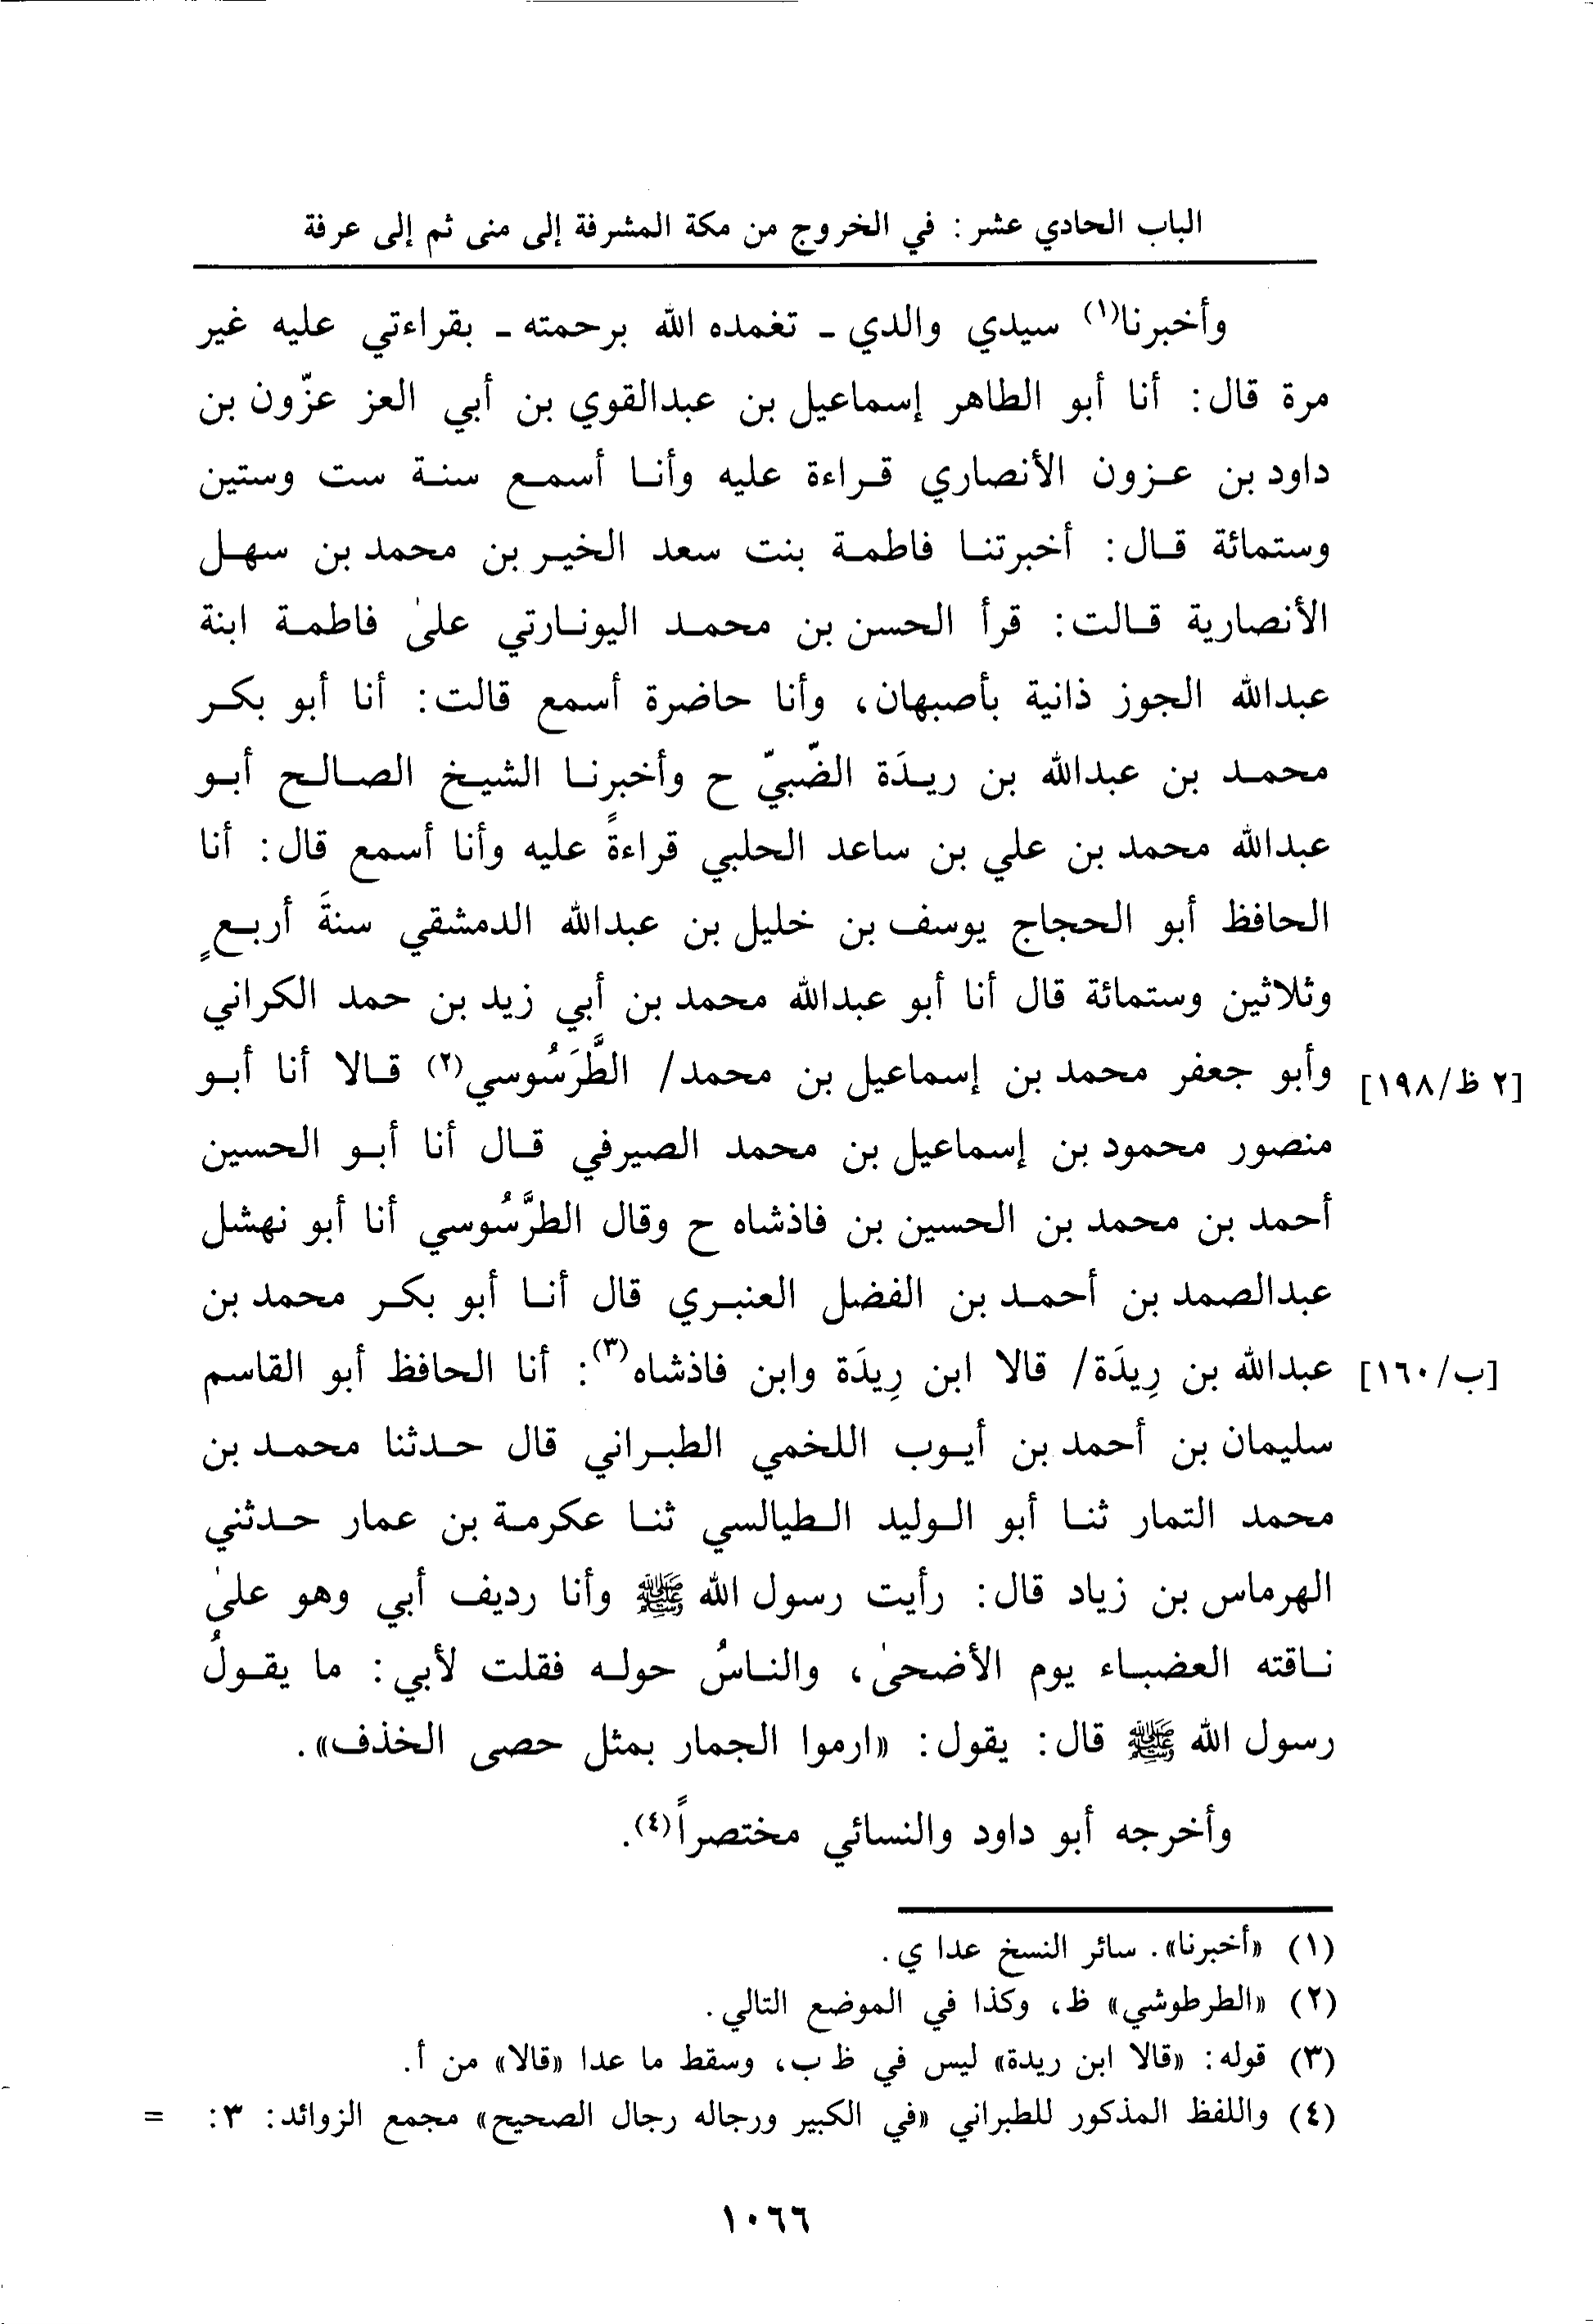 الباب الحادي عشر: في الخروج من مكة المشرفة إلى منى ثم إلى عرفة
وأخبرنا(١) سيدي والدي ـ تغمده الله برحمته ـ بقراءتي عليه غير
مرة قال: أنا أبو الطاهر إسماعيل بن عبدالقوي بن أبي العز عزّون بن
داود بن عزون الأنصاري قراءة عليه وأنا أسمع سنة ست وستين
وستمائة قال: أخبرتنا فاطمة بنت سعد الخير بن محمد بن سهل
الأنصارية قالت: قرأ الحسن بن محمد اليونارتي علىٰ فاطمة ابنة
عبدالله الجوز ذانية بأصبهان، وأنا حاضرة أسمع قالت: أنا أبو بكر
محمد بن عبدالله بن ريدَة الضّبيّ ح وأخبرنا الشيخ الصالح أبو
عبدالله محمد بن علي بن ساعد الحلبي قراءةً عليه وأنا أسمع قال: أنا
الحافظ أبو الحجاج يوسف بن خليل بن عبدالله الدمشقي سنةَ أربعٍ
وثلاثين وستمائة قال أنا أبو عبدالله محمد بن أبي زيد بن حمد الكراني
وأبو جعفر محمد بن إسماعيل بن محمد/ الطَّرَسُوسي(٢) قالا أنا أبو [٢ ظ/١٩٨]
منصور محمود بن إسماعيل بن محمد الصيرفي قال أنا أبو الحسين
أحمد بن محمد بن الحسين بن فاذشاه ح وقال الطرَّسُوسي أنا أبو نهشل
عبدالصمد بن أحمد بن الفضل العنبري قال أنا أبو بكر محمد بن
عبدالله بن رِيدَة/ قالا ابن رِيدَة وابن فاذشاه(٣): أنا الحافظ أبو القاسم [ب/١٦٠]
سليمان بن أحمد بن أيوب اللخمي الطبراني قال حدثنا محمد بن
محمد التمار ثنا أبو الوليد الطيالسي ثنا عكرمة بن عمار حدثني
الهرماس بن زياد قال: رأيت رسول الله ﷺ وأنا رديف أبي وهو علىٰ
ناقته العضباء يوم الأضحىٰ، والناسُ حوله فقلت لأبي: ما يقولُ
رسول الله ﷺ قال: يقول: «ارموا الجمار بمثل حصى الخذف».
وأخرجه أبو داود والنسائي مختصراً(٤).
(١) «أخبرنا». سائر النسخ عدا ي.
(٢) «الطرطوشي» ظ، وكذا في الموضع التالي.
(٣) قوله: «قالا ابن ريدة» ليس في ظ ب، وسقط ما عدا «قالا» من أ.
(٤) واللفظ المذكور للطبراني «في الكبير ورجاله رجال الصحيح» مجمع الزوائد: ٣: =
١٠٦٦